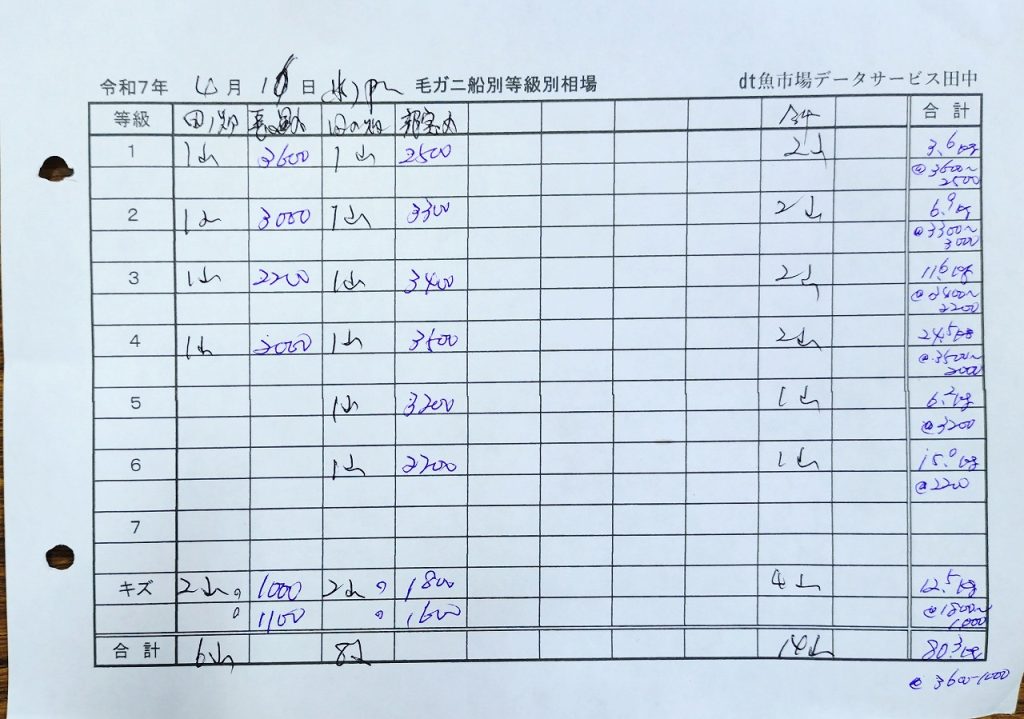 令和7年 4月 16日 (水) 毛ガニ船別等級別相場 dt魚市場データサービス田中
等級 合計 合計
1 1山 3600 1山 2500 2山 3.6kg
@3600〜
2500
2 1山 3000 1山 3300 2山 6.9kg
@3300〜
3000
3 1山 2200 1山 3400 2山 11.6kg
@3400〜
2200
4 1山 2000 1山 3500 2山 24.5kg
@3500〜
2000
5 1山 3200 1山 6.2kg
@3200
6 1山 2200 1山 15.0kg
@2200
7
キズ 2山 1000 2山 1800 4山 12.5kg
1100 1600 @1800〜
1000
合計 6山 8山 14山 80.3kg
@3600-1000